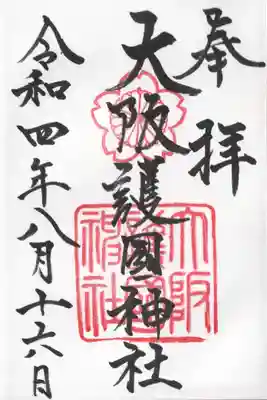 奉拝
大阪護國神社
令和四年八月十六日
大阪護國神社